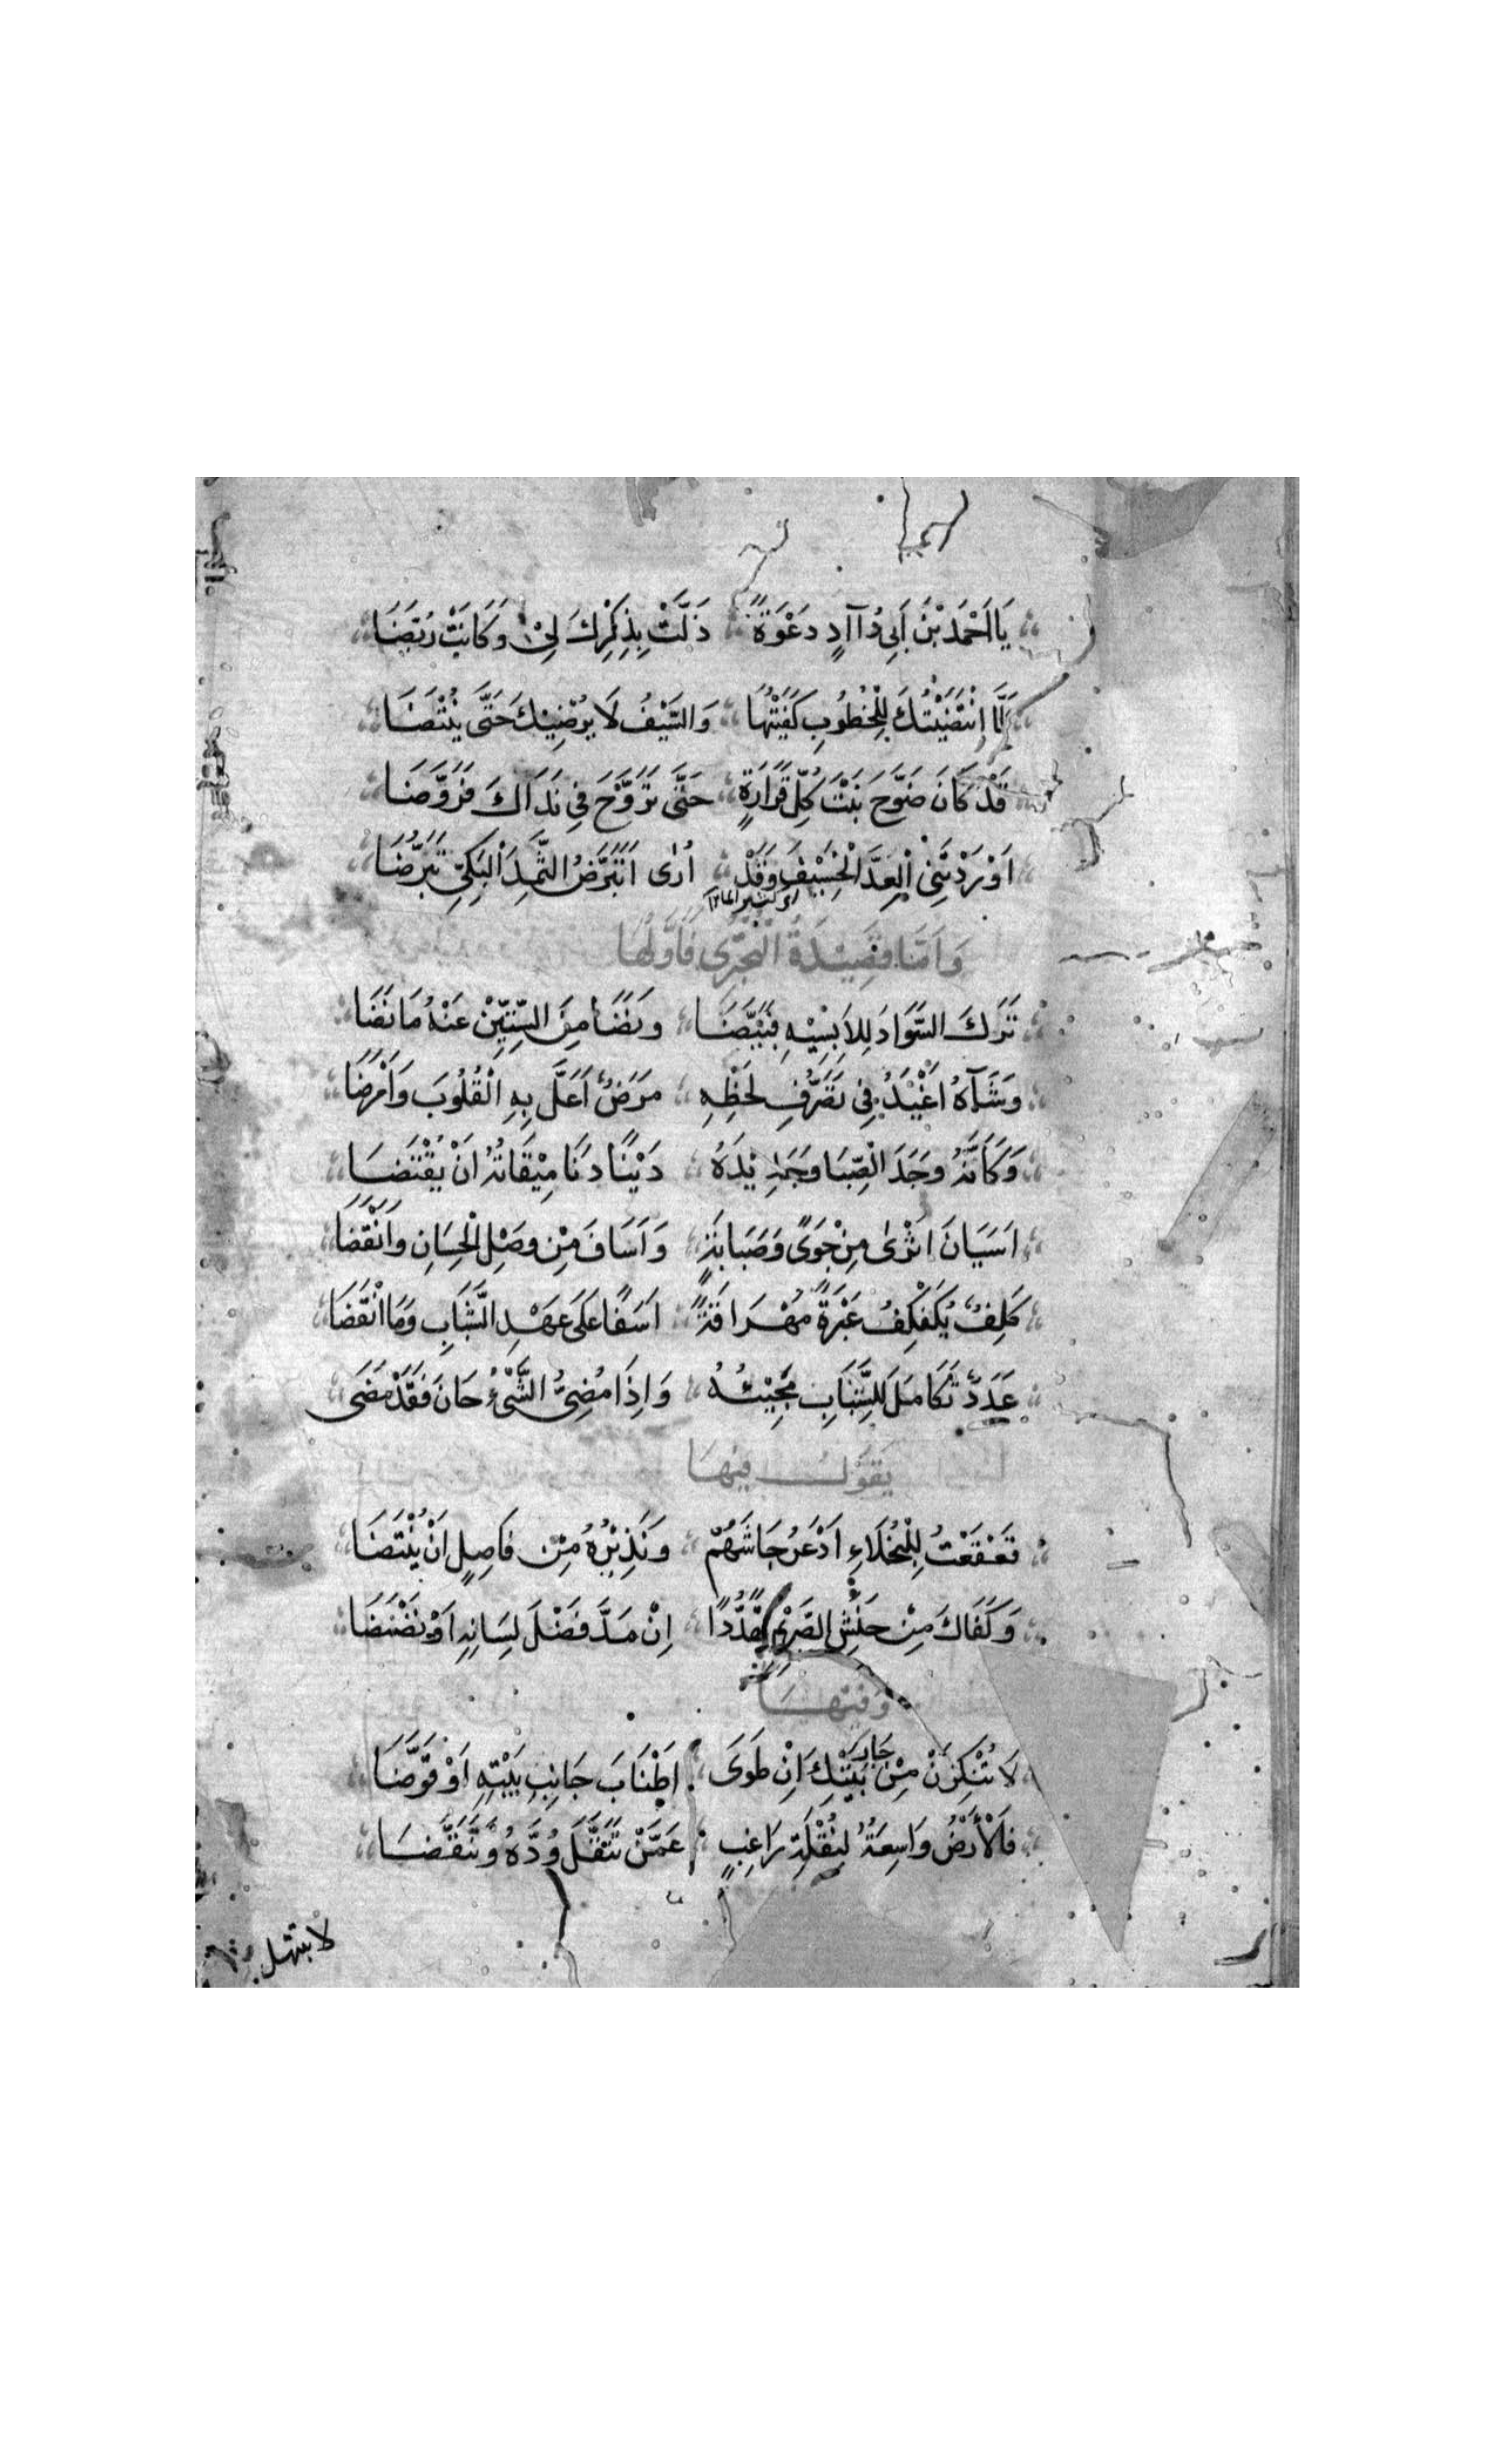 يَا اَحْمَدَ بْنَ اَبِي دُآادٍ دَعْوَةً ذَلَّتْ بِذِكْرِكَ لِيْ وَكَانَتْ رُيَّضَا
لَمَّا اِنْتَضَيْتُكَ لِلْخُطُوبِ كَفَيْتُهَا وَالسَّيْفُ لَا يُرْضِيْكَ حَتَّى يُنْتَضَا
قَدْ كَانَ ضَوَّحَ نَبْتَ كُلِّ قَرَارَةٍ حَتَّى تَرَوَّحَ فِي نَدَاكَ فَرَوَّضَا
اَوْرَدْتَنِي الْعِدَّ الْخَسِيْفَ وَقَدْ اُرٰى اَتَبَرَّضُ الثَّمَدَ الْبَكِيَّ تَبَرُّضَا
اي كثير الماء
وَاَمَّا قَصِيْدَةُ الْبُحْتُرِي فَاَوَّلُهَا
تَرَكَ السَّوَادَ لِلاَبِسِيْهِ فَبَيَّضَا وَنَضَا مِنَ السِّتِّيْنَ عَنْهُ مَا نَضَا
وَشَآهُ اَغْيَدُ فِي تَصَرُّفِ لَحْظِهِ مَرَضٌ اَعَلَّ بِهِ الْقُلُوبَ وَاَمْرَضَا
وَكَاَنَّهُ وَجَدَ الْصِّبَا وَجَدِيْدَهُ دَيْنًا دَنَا مِيْقَاتُهُ اَنْ يُقْتَضَا
اَسَيَانَ اَثْرٰى مِنْ جَوًى وَصَبَابَةٍ وَاَسَافَ مِنْ وَصْلِ الْحِسَانِ وَاَنْقَضَا
كَلِفٌ يُكَفْكِفُ عَبْرَةً مُهْرَاقَةً اَسَفًا عَلَى عَهْدِ الشَّبَابِ وَمَا انْقَضَا
عَدَدٌ تَكَامَلَ لِلشَّبَابِ مَجِيْئُهُ وَاِذَا مُضِيُّ الشَّيْءِ حَانَ فَقَدْ مَضَى
يَقُوْلُ فِيْهَا
قَعْقَعْتُ لِلْبُخَلَاءِ اَذْعَرُ جَاشَهُمْ وَنَذِيْرُهُ مِنْ فَاصِلٍ اَنْ يُنْتَضَا
وَكَفَاكَ مِنْ حَنَشِ الصَّرِيْمِ تَهَدُّدًا اِنْ مَدَّ فَضْلَ لِسَانِهِ اَوْ نَضْنَضَا
وَفِيْهَا
لَا تُنْكِرَنْ مِنْ جَارِ بَيْتِكَ اِنْ طَوَى اَطْنَابَ جَانِبِ بَيْتِهِ اَوْ قَوَّضَا
فَالْأَرْضُ وَاسِعَةٌ لِنُقْلَةِ رَاغِبٍ عَمَّنْ تَنَقَّلَ وُدُّهُ وَتَنَقَّضَا
لا تبتهل